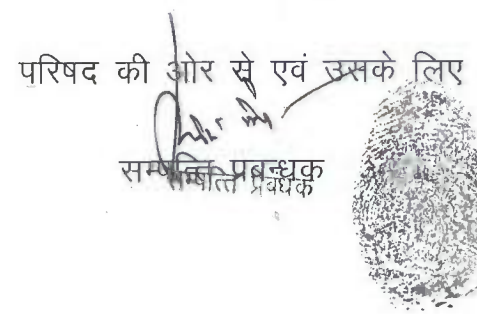 परिषद की ओर से एवं उसके लिए
सम्पत्ति प्रबन्धक
सम्पत्ति प्रबंधक